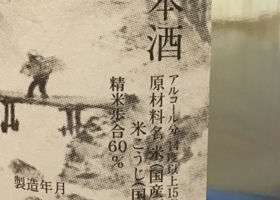 本酒
アルコール分 14度以上15
原材料名 米(国産
米こうじ(国
精米歩合60%
製造年月